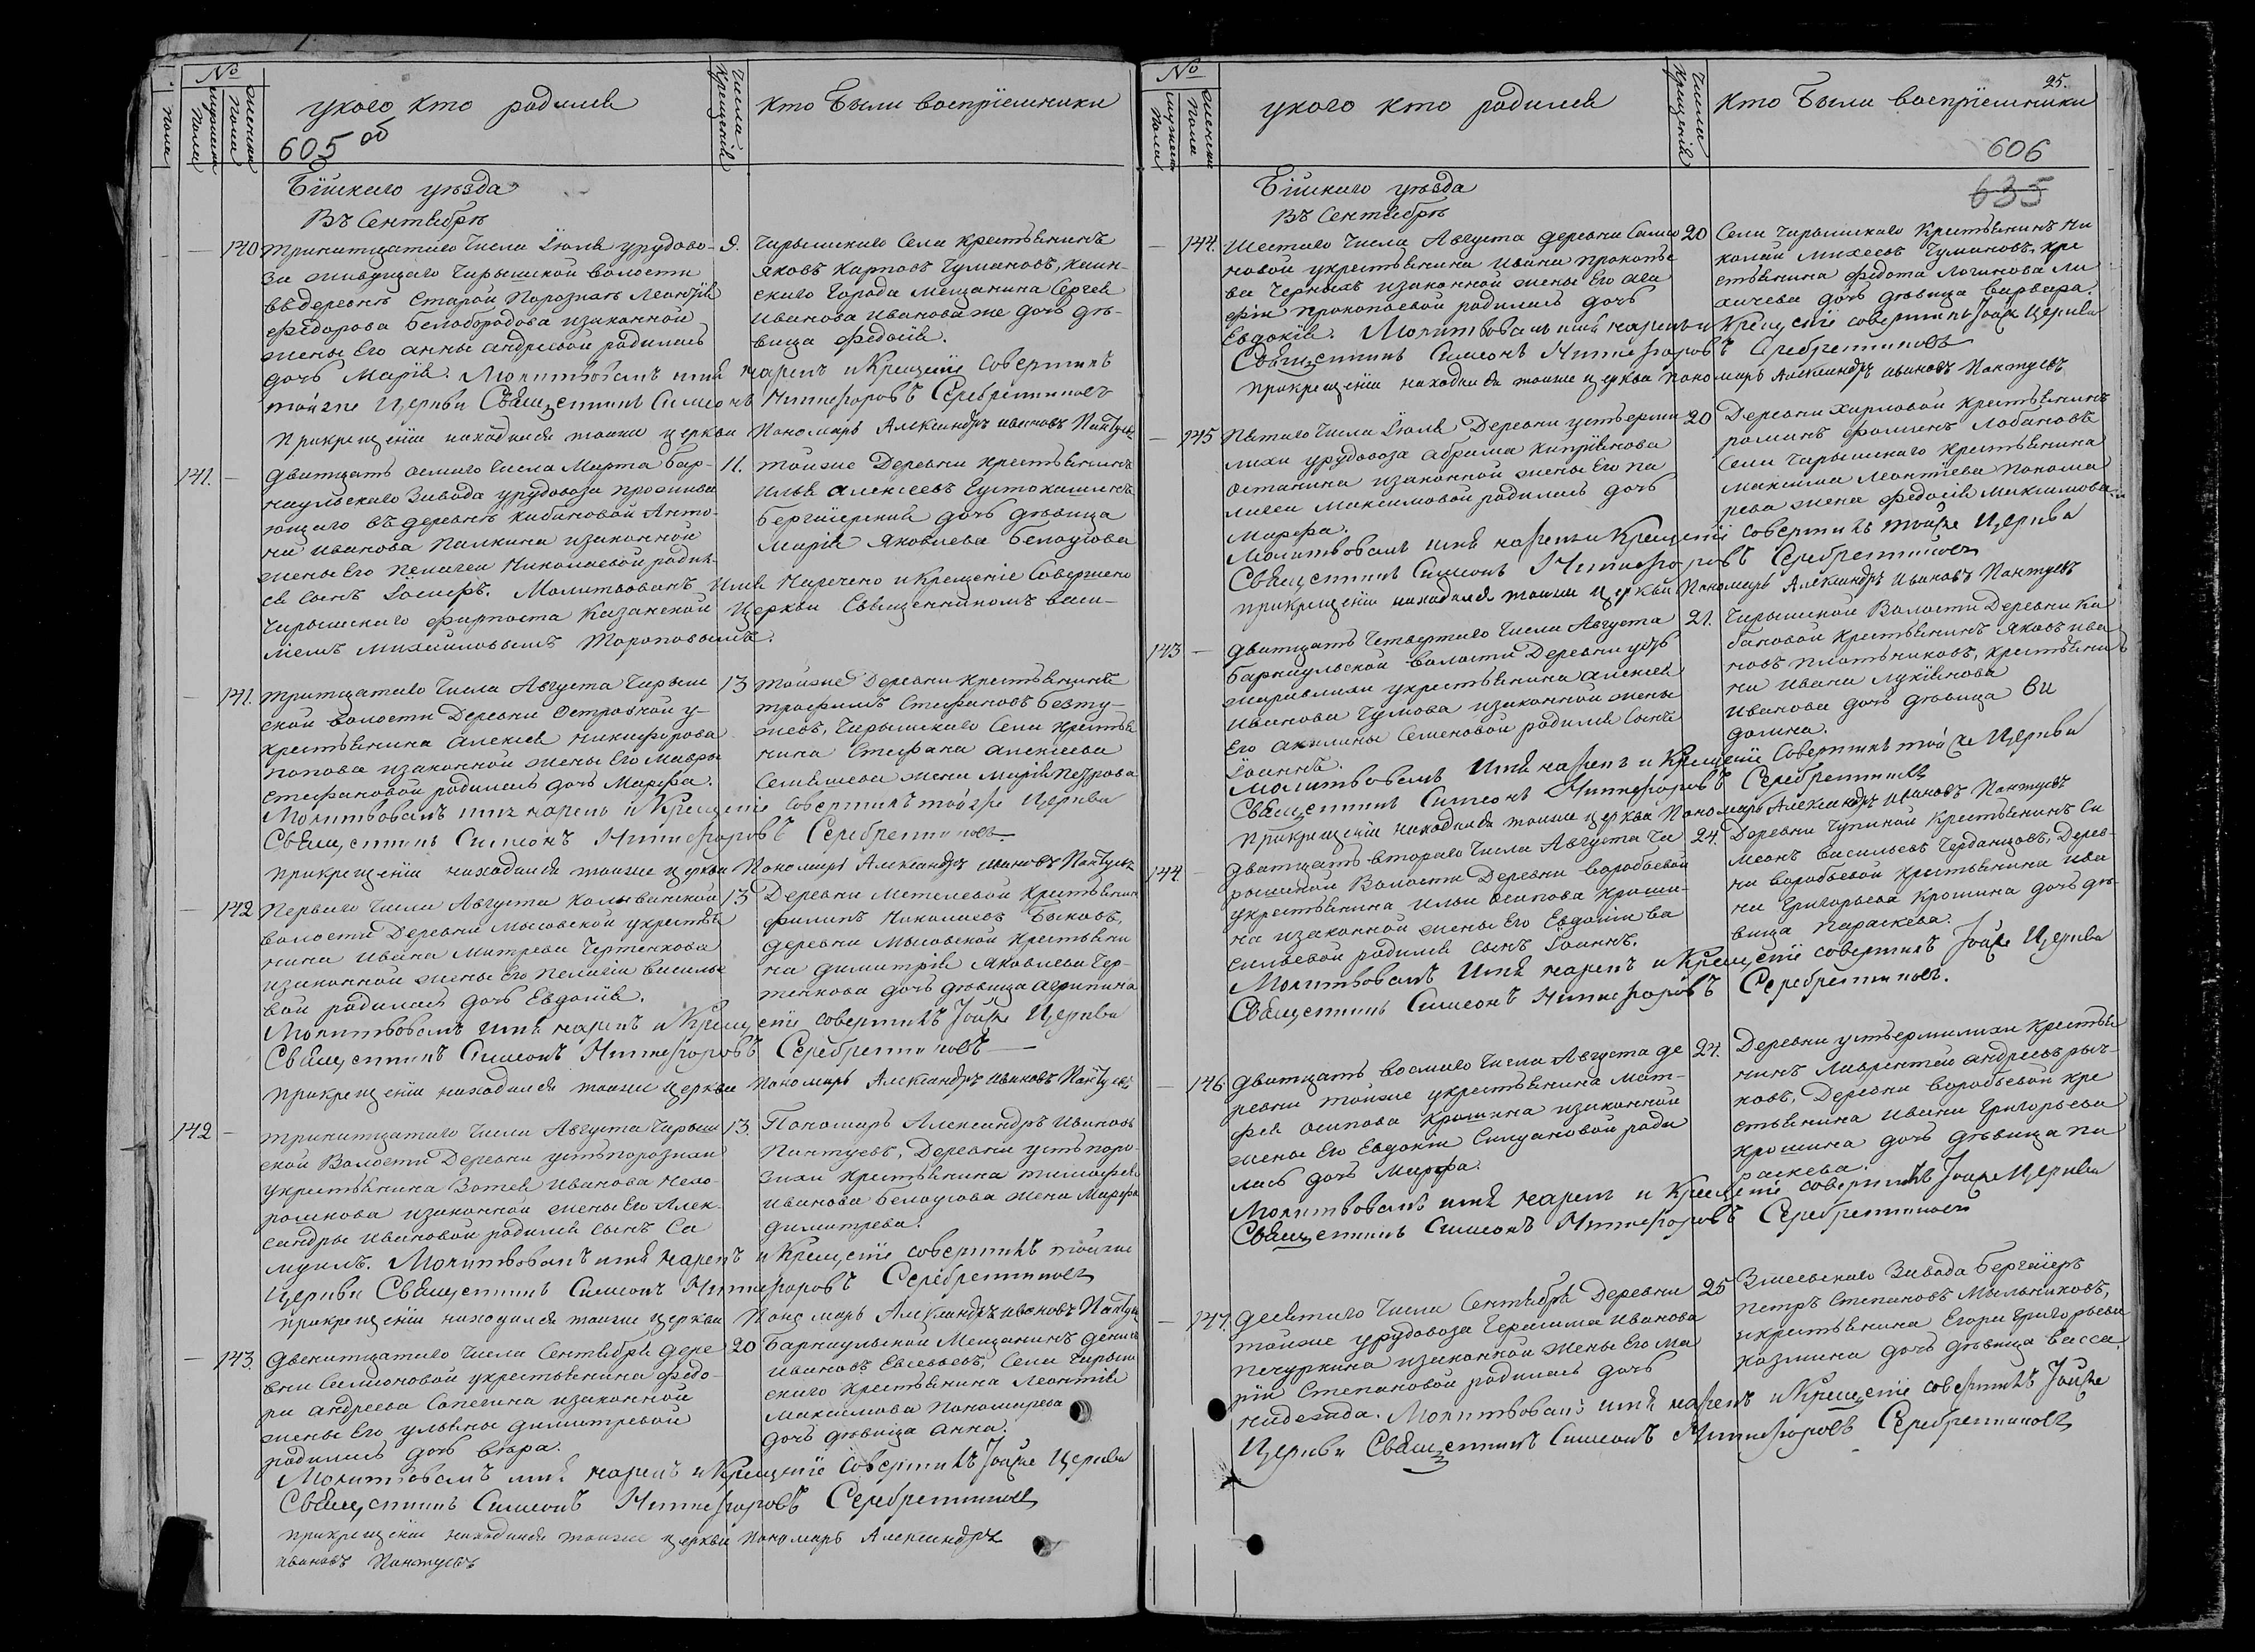 №
Пола
мужеска Пола
женска Пола
укого кто родился
Числа Крещенія
кто были воспрїемники
605 об
Бїйскаго уѣзда
Въ Сентябрѣ
140 тринатцатаго Числа Іюля урудово-
за живущаго Чарышской волости
въ деревнѣ Старой Порозихѣ Леонтїя
Федорова Белобородова изаконной
жены Его анны андреевой родилась
дочь Марїя. Молитвовалъ имя нарекъ и Крещенїе Совершилъ
тойже Церкви Священникъ Симеонъ Никифоровъ Серебренниковъ
прикрещенїи находился тоиже церкви Пономарь Александръ ивановъ Пантуевъ
9. Чарышскаго Села крестьянинъ
яковъ карповъ Чумановъ, каин-
скаго города мещанина Сергея
иванова иванова же дочь дѣ-
вица федосїя.
141. Дватцать осмаго Числа Марта бар-
наульскаго Завода урудовоза прожива
ющаго въ деревнѣ кабановой Анто-
на иванова Палкина изаконной
жены Его пелагеи Николаевой родил-
ся сынъ Іосифъ. Молитвованъ имя Наречено и крещенїе Совершено
Чарышскаго форпоста Казанской Церкви Священникомъ васи-
лїемъ михайловымъ Тороповымъ.
11. тойже Деревни крестьянинъ
илья алексеевъ Густокашинъ
бергаіерский дочь дѣвица
марїя яковлева белоусова
141. тритцатаго Числа Августа Чарыш
ской волости Деревни Островной у-
крестьянина алексея никифорова
попова изаконной жены Его мавры
стефановой родилась дочь Марфа.
Молитвовалъ имя нарекъ и Крещенїе совершилъ тойже Церкви
Священникъ Симеонъ Никифоровъ Серебренниковъ
прикрещенїи находился тоиже церкви Пономарь Александръ ивановъ Пантуевъ
13 тойже Деревни крестьянинъ
трофимъ Стефановъ Бевту-
жевъ, Чарышскаго Села крестья
нина Стефана алексеева
жена марїя петрова
142 Перваго Числа Августа колыванской
волости Деревни Мысовской укрестья
нина ивана митрева Чертенкова
изаконной жены Его пелагїи василье
вой родилась дочь Евдокїя.
Молитвовалъ имя нарекъ и Крещенїе совершилъ тойже Церкви
Священникъ Симеонъ Никифоровъ Серебренниковъ
прикрещенїи находился тоиже церкви Пономарь Александръ ивановъ Пантуевъ
13 Деревни Метелевой крестьянинъ
филипъ Николаевъ Быковъ,
деревни мысовской крестьяни
на димитрїя яковлева Чер-
тенкова дочь дѣвица агрипина
142 тринатцатаго Числа Августа Чарыш
ской Волости Деревни устьпорозихи
укрестьянина Зотея иванова нехо-
рошкова изаконной жены Его Алек-
сандры ивановой родился сынъ Са
муилъ. Молитвовалъ имя нарекъ и Крещенїе совершилъ тойже
Церкви Священникъ Симеонъ Никифоровъ Серебренниковъ
прикрещенїи находился тоиже церкви Пономарь Александръ ивановъ Пантуевъ
13. Пономарь Александръ Ивановъ
Пантуевъ, Деревни устьпоро-
зихи крестьянина тимофея
иванова белоусова жена марфа
димитрева.
143. Двенатцатаго Числа Сентября дере
вни Самсоновой укрестьянина федо-
ра андреева Сапегина изаконной
жены Его ульяны димитревой
родилась дочь вѣра.
Молитвовалъ имя нарекъ и Крещенїе совершилъ тойже Церкви
Священникъ Симеонъ Никифоровъ Серебренниковъ
прикрещенїи находился тоиже церкви пономарь Александръ
ивановъ Пантуевъ
20 Барнаульской Мещанинъ денисъ
ивановъ Евсевьевъ, Села Чарыш
скаго крестьянина Леонтїя
максимова пономарева
дочь дѣвица анна.
№
мужеска Пола
женска Пола
укого кто родился
Числа Крещенія
кто были воспрїемники
25.
606
635
Бїйскаго уѣзда
Въ Сентябрѣ
144. Шестаго Числа Августа деревни Самсо
новой укрестьянина ивана прокопье
ва Черныхъ изаконной жены Его ага
фїи прокопьевой родилась дочь
Евдокїя. Молитвовалъ имя нарекъ и Крещенїе совершилъ тойже Церкви
Священникъ Симеонъ Никифоровъ Серебренниковъ
прикрещенїи находился тоиже церкви пономарь Александръ ивановъ Пантуевъ
20 Села Чарышскаго Крестьянинъ ни
колай михеевъ Чумановъ, кре
стьянина федота Логинова Ли
хачева дочь дѣвица варвара.
145 Пятаго Числа Іюля Деревни устьерми
лихи урудовоза абрама киприянова
останина изаконной жены Его па
лагеи максимовой родилась дочь
Марфа.
Молитвовалъ имя нарекъ и Крещенїе совершилъ тойже Церкви
Священникъ Симеонъ Никифоровъ Серебренниковъ
прикрещенїи находился тоиже церкви Пономарь Александръ ивановъ Пантуевъ
20 Деревни харловой крестьянинъ
романъ фоминъ Лобановъ
Села Чарышскаго крестьянина
максима Леонтїева понома
рева жена федосїя максимова
143 Дватцать Четвертаго Числа Августа
барнаульской волости Деревни усть
журавлихи укрестьянина алексея
иванова Чумова изаконной жены
Его акилины Семеновой родился сынъ
Іоаннъ.
Молитвовалъ имя нарекъ и Крещенїе Совершилъ тойже Церкви
Священникъ Симеонъ Никифоровъ Серебренниковъ
прикрещенїи находился тоиже церкви Пономарь Александръ ивановъ Пантуевъ
21. Чарышской Волости Деревни ка
бановой крестьянинъ яковъ ива
новъ плотниковъ, крестьяни
на ивана Лукїянова
иванова дочь дѣвица Ев
докина.
144. Дватцать втораго Числа Августа Ча
рышской Волости Деревни воробьевой
укрестьянина ильи осипова кроши-
на изаконной жены Его Евдокїи ва
сильевой родился сынъ Іоаннъ.
Молитвовалъ имя нарекъ и Крещенїе совершилъ тойже Церкви
Священникъ Симеонъ Никифоровъ Серебренниковъ.
24. Деревни Чупиной крестьянинъ си
меонъ васильевъ Черданцовъ, Дерев-
ни воробьевой крестьянина ива
на григорьева крошина дочь дѣ-
вица Параскева.
146 Дватцать восмаго Числа Августа де
ревни тойже укрестьянина мат-
фея осипова крошина изаконной
жены Его Евдокїи Силуановой роди
лась дочь Марфа.
Молитвовалъ имя нарекъ и Крещенїе совершилъ тойже Церкви
Священникъ Симеонъ Никифоровъ Серебренниковъ
24. Деревни устьермилихи крестья
нинъ Лаврентей андреевъ рыч-
ковъ, Деревни воробьевой кре
стьянина ивана григорьева
крошина дочь дѣвица па
раскева.
147. Девятаго Числа Сентября Деревни
тойже урудовоза Герасима иванова
печуркина изаконной жены Его ма
рїи Степановой родилась дочь
надежда. Молитвовалъ имя нарекъ и Крещенїе совершилъ тойже
Церкви Священникъ Симеонъ Никифоровъ Серебренниковъ
25 Змеевскаго Завода бергаіеръ
петръ Степановъ Мыльниковъ,
икрестьянина Егора григорьева
козмина дочь дѣвица васса.